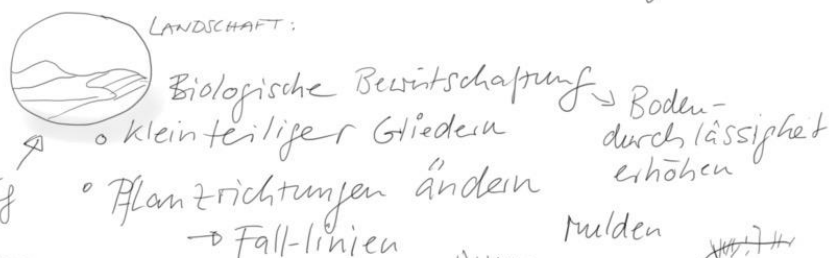 LANDSCHAFT:
Biologische Bewirtschaftung → Boden-
durchlässigkeit
erhöhen
• kleinteiliger Gliedern
• Pflanzrichtungen ändern
→ Fall-linien
Mulden